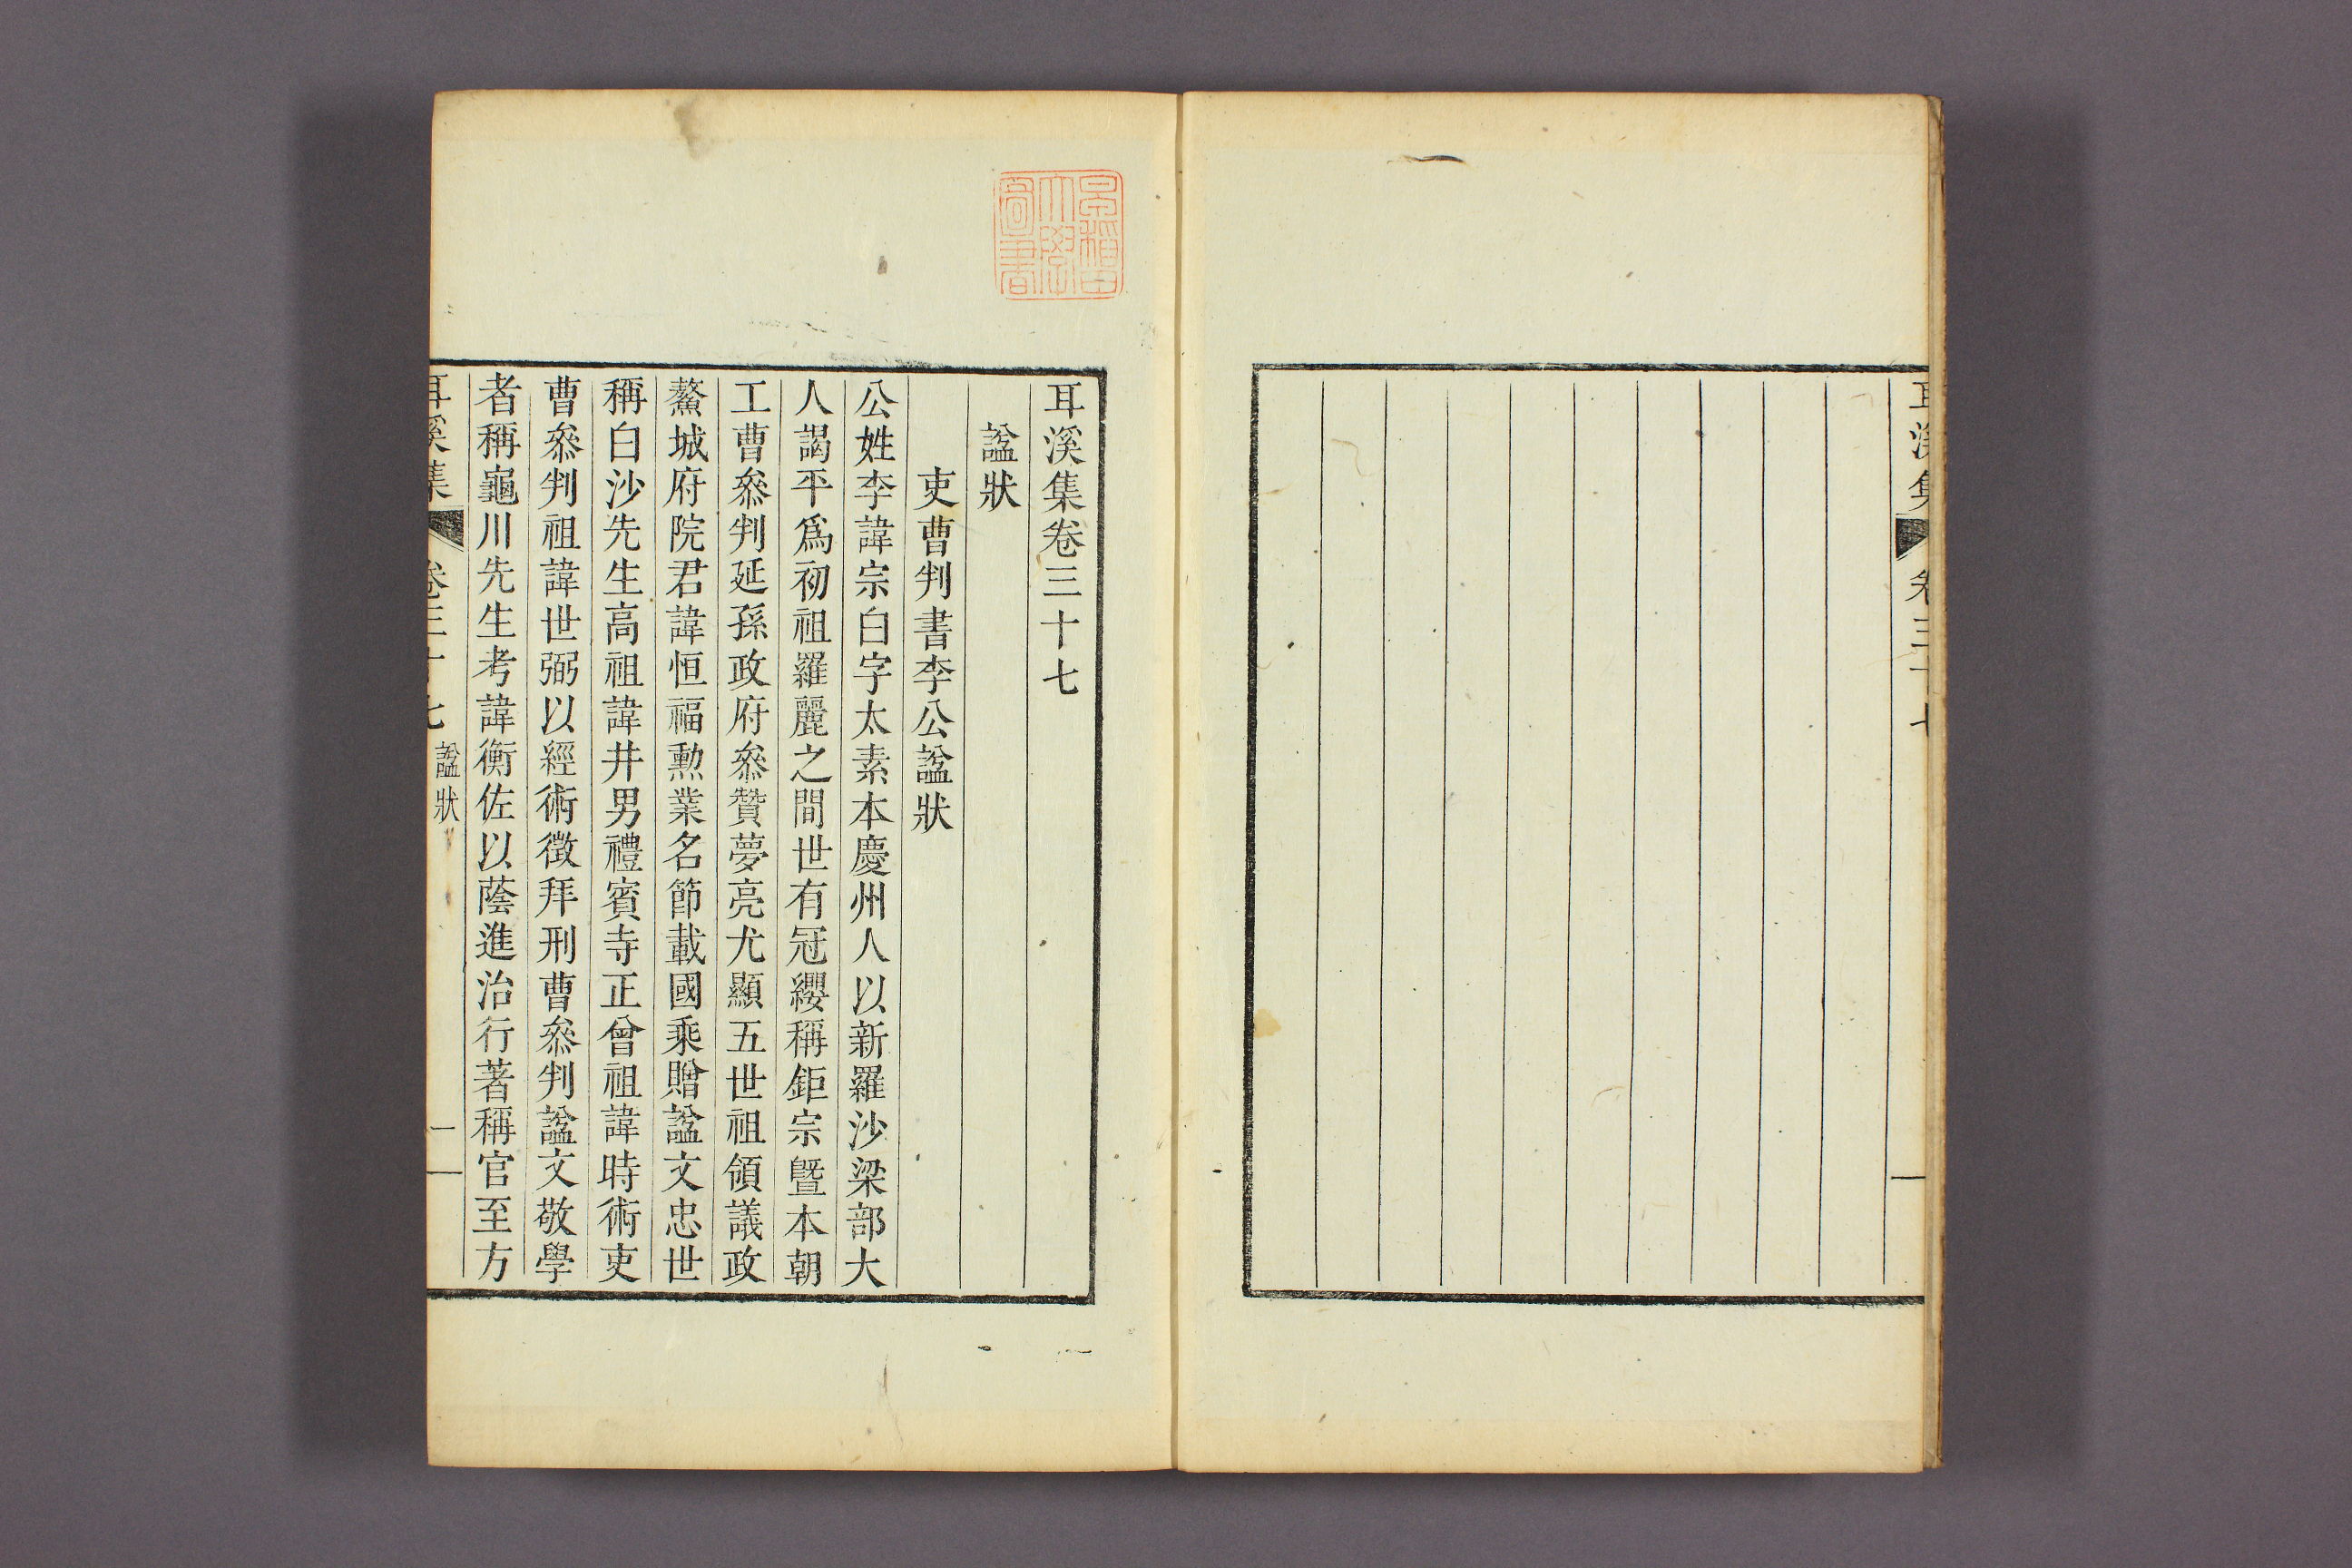 耳溪集
卷三十七
一
早稻田
大學
圖書
耳溪集卷三十七
諡狀
吏曹判書李公諡狀
公姓李諱宗白字太素本慶州人以新羅沙梁部大
人謁平爲初祖羅麗之間世有冠纓稱鉅宗曁本朝
工曹叅判延孫政府叅贊夢亮尤顯五世祖領議政
鰲城府院君諱恒福勲業名節載國乘贈諡文忠世
稱白沙先生高祖諱井男禮賓寺正曾祖諱時術吏
曹叅判祖諱世弼以經術徵拜刑曹叅判諡文敬學
者稱龜川先生考諱衡佐以蔭進治行著稱官至方
耳溪集
卷三十七
諡狀
一